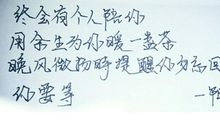 终会有个人陪你
用余生为你暖一盏茶
晚风微扬时提醒你勿忘回
你要等 一